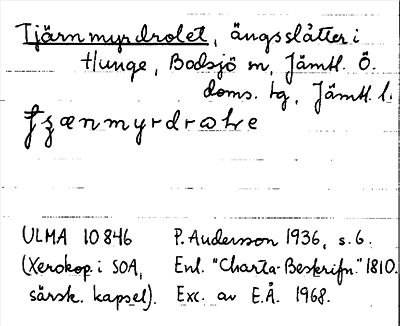 Tjärnmyrdrolet, ängsslåtter i
Hunge, Bodsjö sn, Jämtl. Ö.
doms. tg, Jämtl. l.
ULMA 10846 P. Andersson 1936, s. 6.
(Xerokop. i SOA, Enl. "Charta-Beskrifn." 1810.
särsk. kapsel). Exc. av E.Å. 1968.